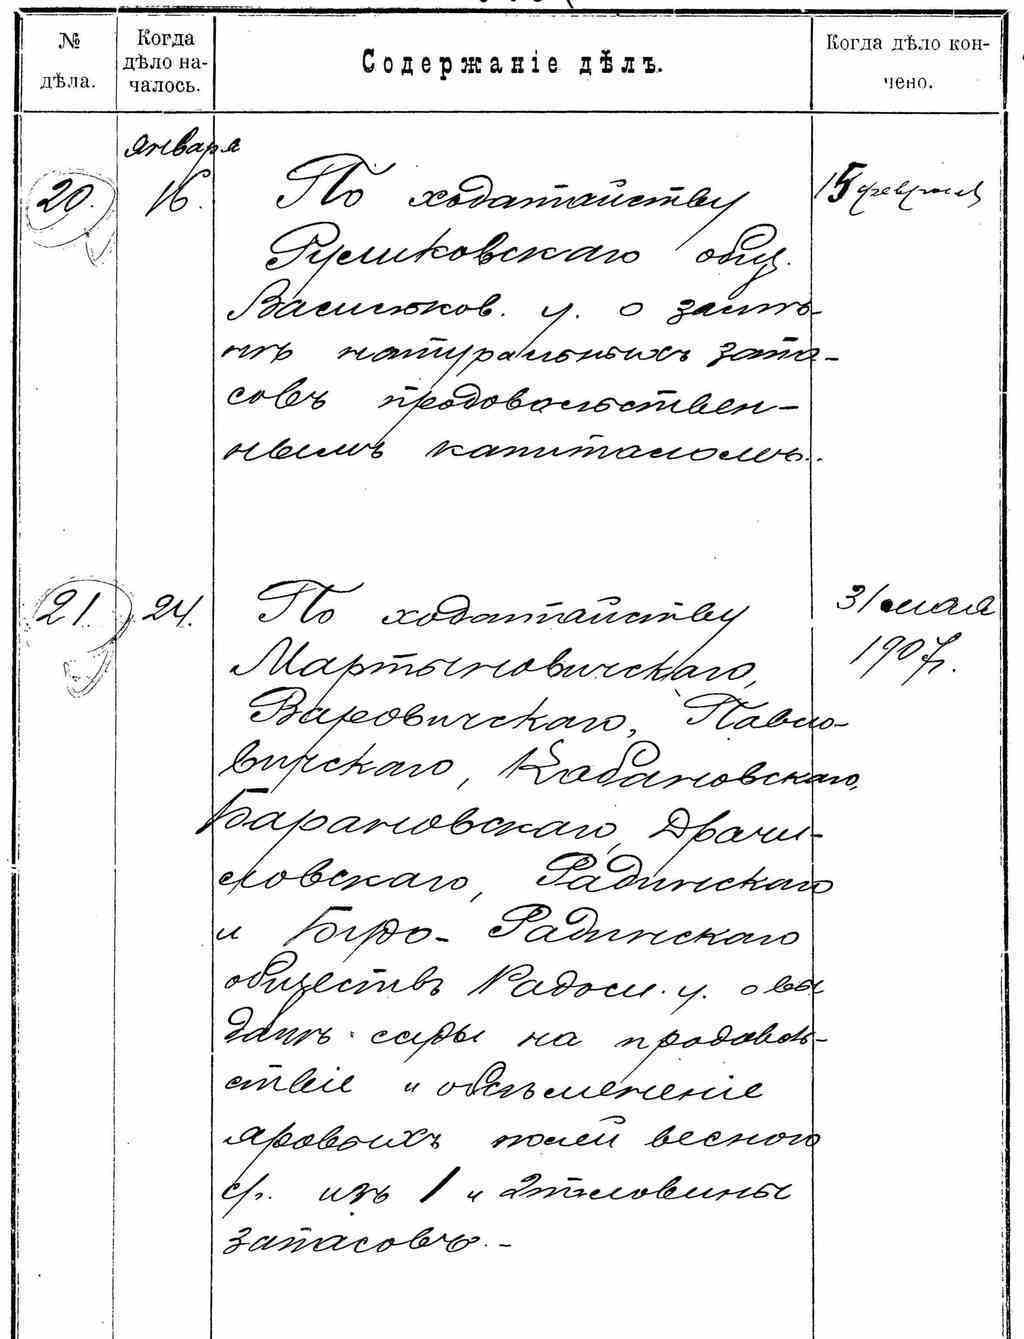 № дѣла.
Когда дѣло на-
чалось.
Содержаніе дѣлъ.
Когда дѣло кон-
чено.
января
20.
16.
По ходатайству
15 февраля
Руликовскаго общ.
Васильков. у. о замѣ-
нѣ натуральныхъ запа-
совъ продовольствен-
нымъ капиталомъ.
21.
24.
По ходатайству
31 мая
1907 г.
Мартыновичскаго,
Варовичскаго, Павло-
вичскаго, Кабановскаго,
Барановскаго, Драчи-
ловскаго, Радинскаго
и Радинскаго
обществъ Радом. у. о вы
дачѣ ссуды на продоволь-
ствіе и обсѣмененіе
яровыхъ полей весною
с/г. изъ 1 и 2 половины
запасовъ.-